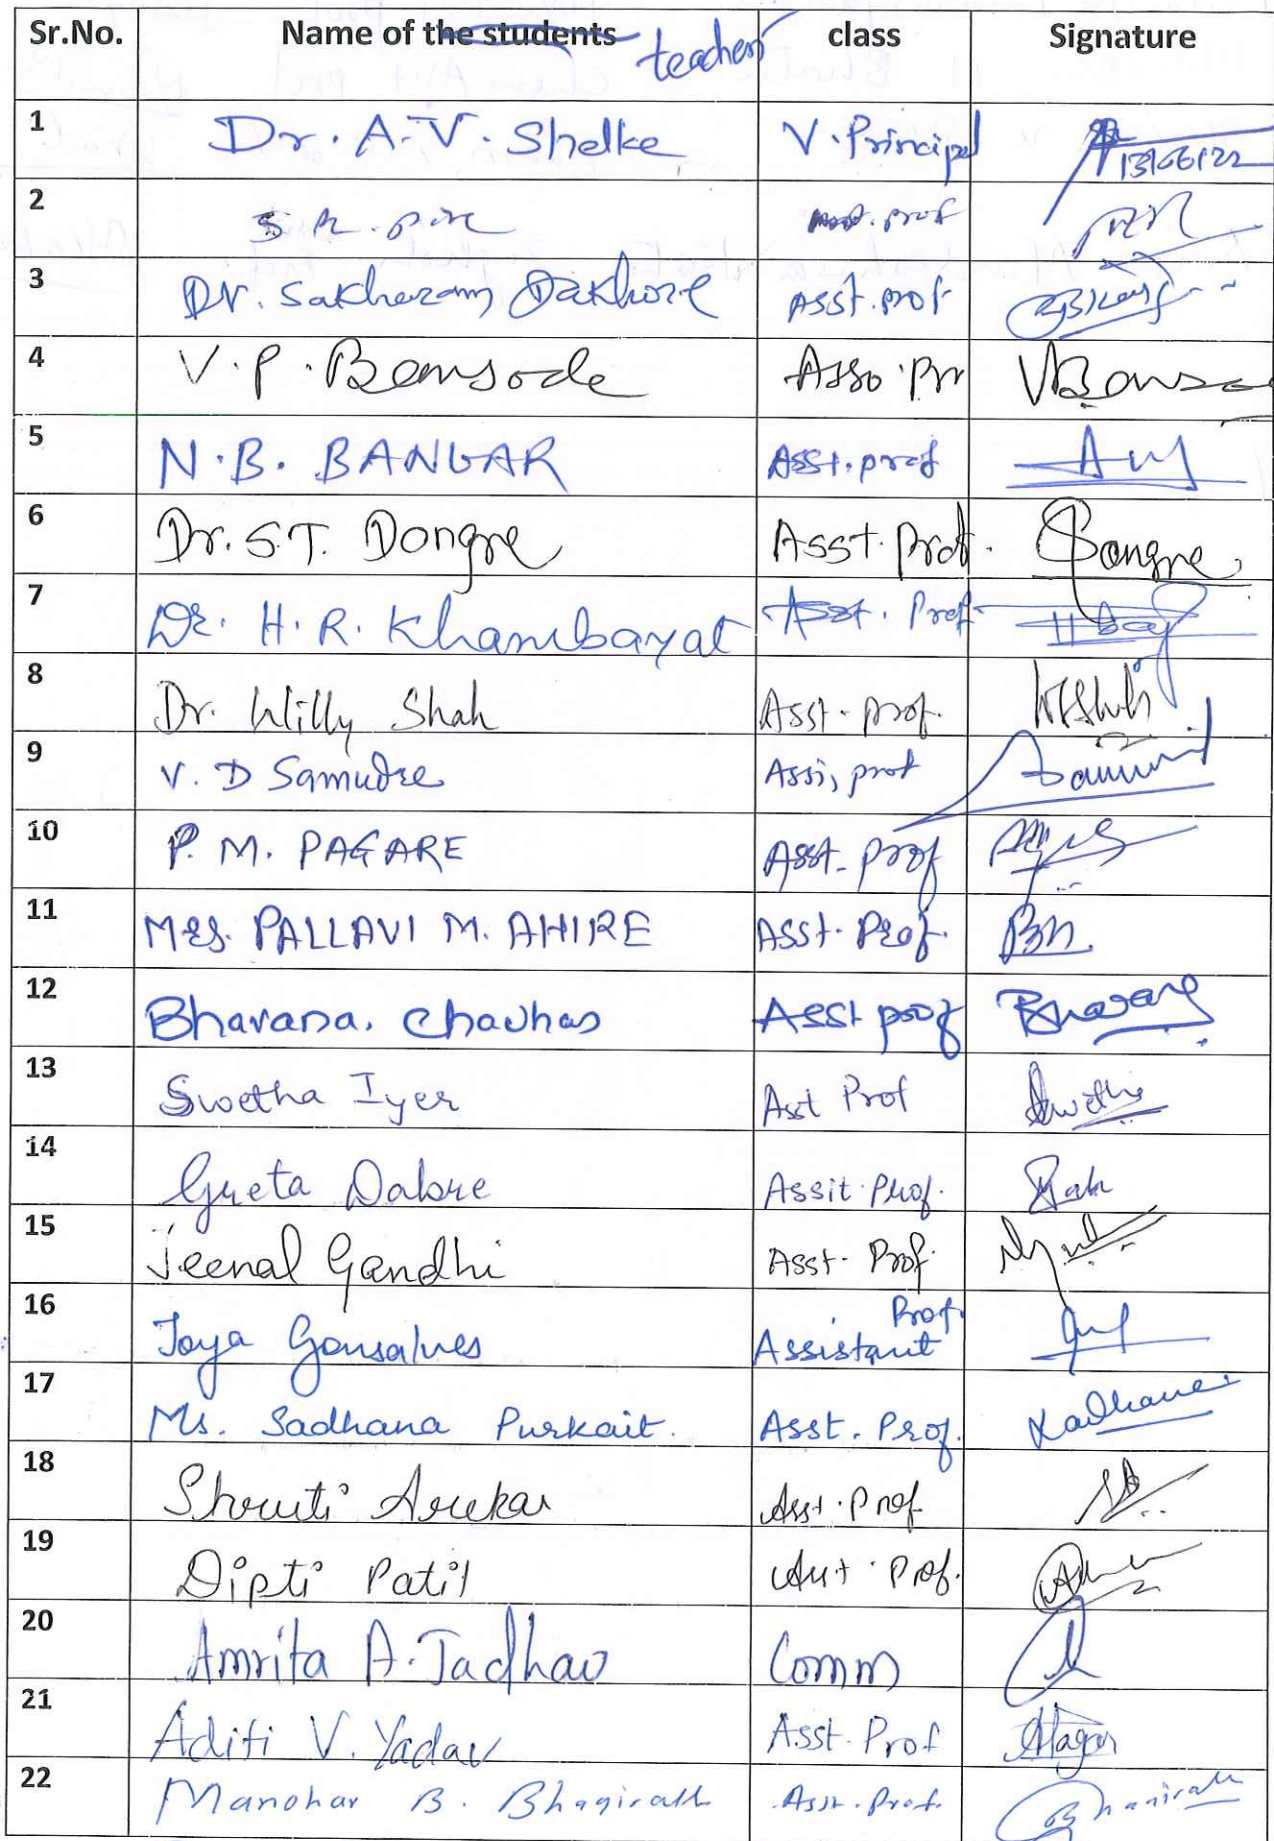 Sr.No. Name of the students teachers class Signature
1 Dr. A.V. Shelke V. Principal 13/06/22
2 prof
3 Dr. Sakharam Dakhore Asst. prof
4 V. P. Bansode Asso. Pr
5 N.B. BANGAR Asst. prof
6 Dr. S.T. Dongre Asst. Prof. Dongre
7 Dr. H. R. Khambayat Asst. Prof
8 Dr. Willy Shah Asst. prof.
9 V. D Samudre Assi, prof
10 P. M. PAGARE Asst. prof
11 Mrs. PALLAVI M. AHIRE Asst. Prof.
12 Bhavana. Chavhan Asst prof
13 Swetha Iyer Asst Prof Swetha
14 Greta Dabre Assit. Prof.
15 Jeenal Gandhi Asst. Prof.
16 Joya Gonsalves Assistant Prof.
17 Ms. Sadhana Purkait. Asst. Prof. Sadhana
18 Shruti Arekar Asst. Prof
19 Dipti Patil Asst. Prof.
20 Amrita A. Jadhav Comm
21 Aditi V. Yadav Asst. Prof
22 Manohar B. Bhagirath Asst. Prof.